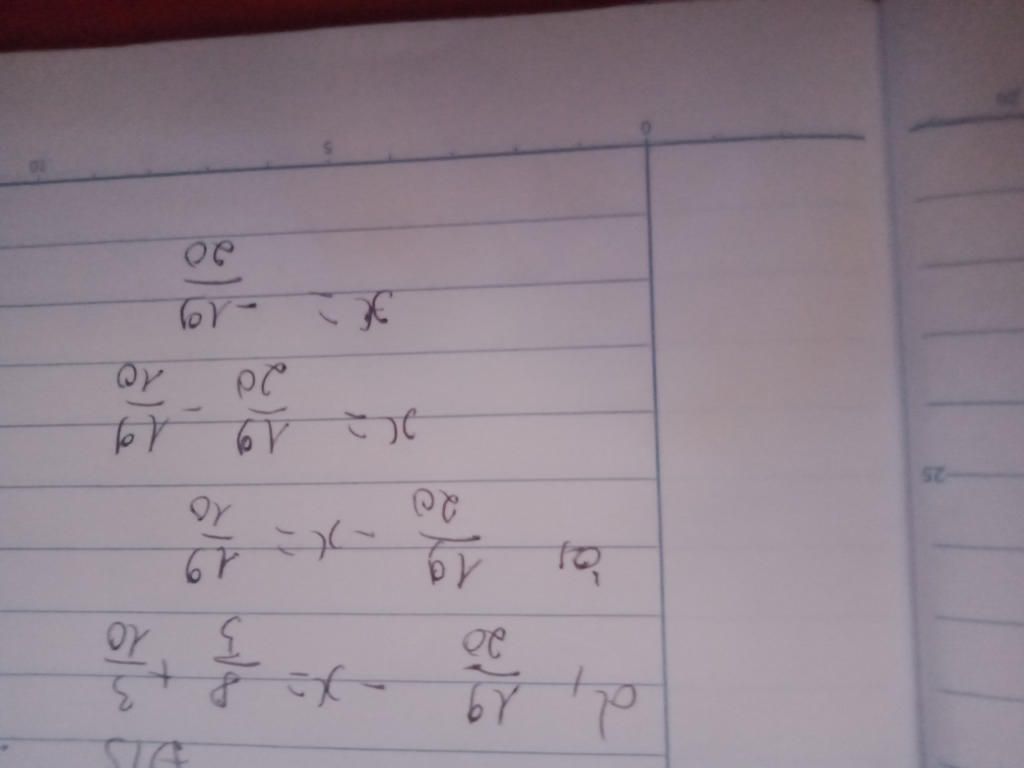 d, 19/20 - x = 8/5 + 3/10
19/20 - x = 19/10
x = 19/20 - 19/10
x = -19/20
0 5 10
25
20